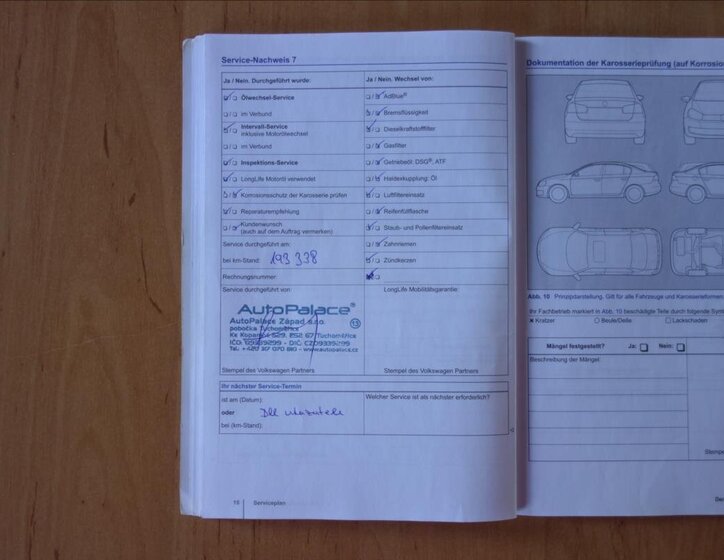 Service-Nachweis 7
Ja / Nein. Durchgeführt wurde:
Ja / Nein. Wechsel von:
Ölwechsel-Service
AdBlue®
im Verbund
Bremsflüssigkeit
Intervall-Service
inklusive Motorölwechsel
Dieselkraftstofffilter
im Verbund
Gasfilter
Inspektions-Service
Getriebeöl: DSG®, ATF
LongLife Motoröl verwendet
Haldexkupplung: Öl
Korrosionsschutz der Karosserie prüfen
Luftfiltereinsatz
Reparaturempfehlung
Reifenfüllflasche
Kundenwunsch
(auch auf dem Auftrag vermerken)
Staub- und Pollenfiltereinsatz
Service durchgeführt am:
Zahnriemen
bei km-Stand: 193 338
Zündkerzen
Rechnungsnummer:
Service durchgeführt von:
LongLife Mobilitätsgarantie:
AutoPalace®
AutoPalace Západ s.r.o.
pobočka Tuchoměřice
13
Ke Kopanině 529, 252 67 Tuchoměřice
www.autopalace.cz
Stempel des Volkswagen Partners
Stempel des Volkswagen Partners
Ihr nächster Service-Termin
ist am (Datum):
Welcher Service ist als nächster erforderlich?
oder
Dle ukazatele
bei (km-Stand):
16 Serviceplan
Dokumentation der Karosserieprüfung (auf Korrosio
Abb. 10 Prinzipdarstellung. Gilt für alle Fahrzeuge und Karosserieformen
Ihr Fachbetrieb markiert in Abb. 10 beschädigte Teile durch folgende Sym
Kratzer
Beule/Delle
Lackschaden
Mängel festgestellt? Ja: Nein:
Beschreibung der Mängel:
Stempe